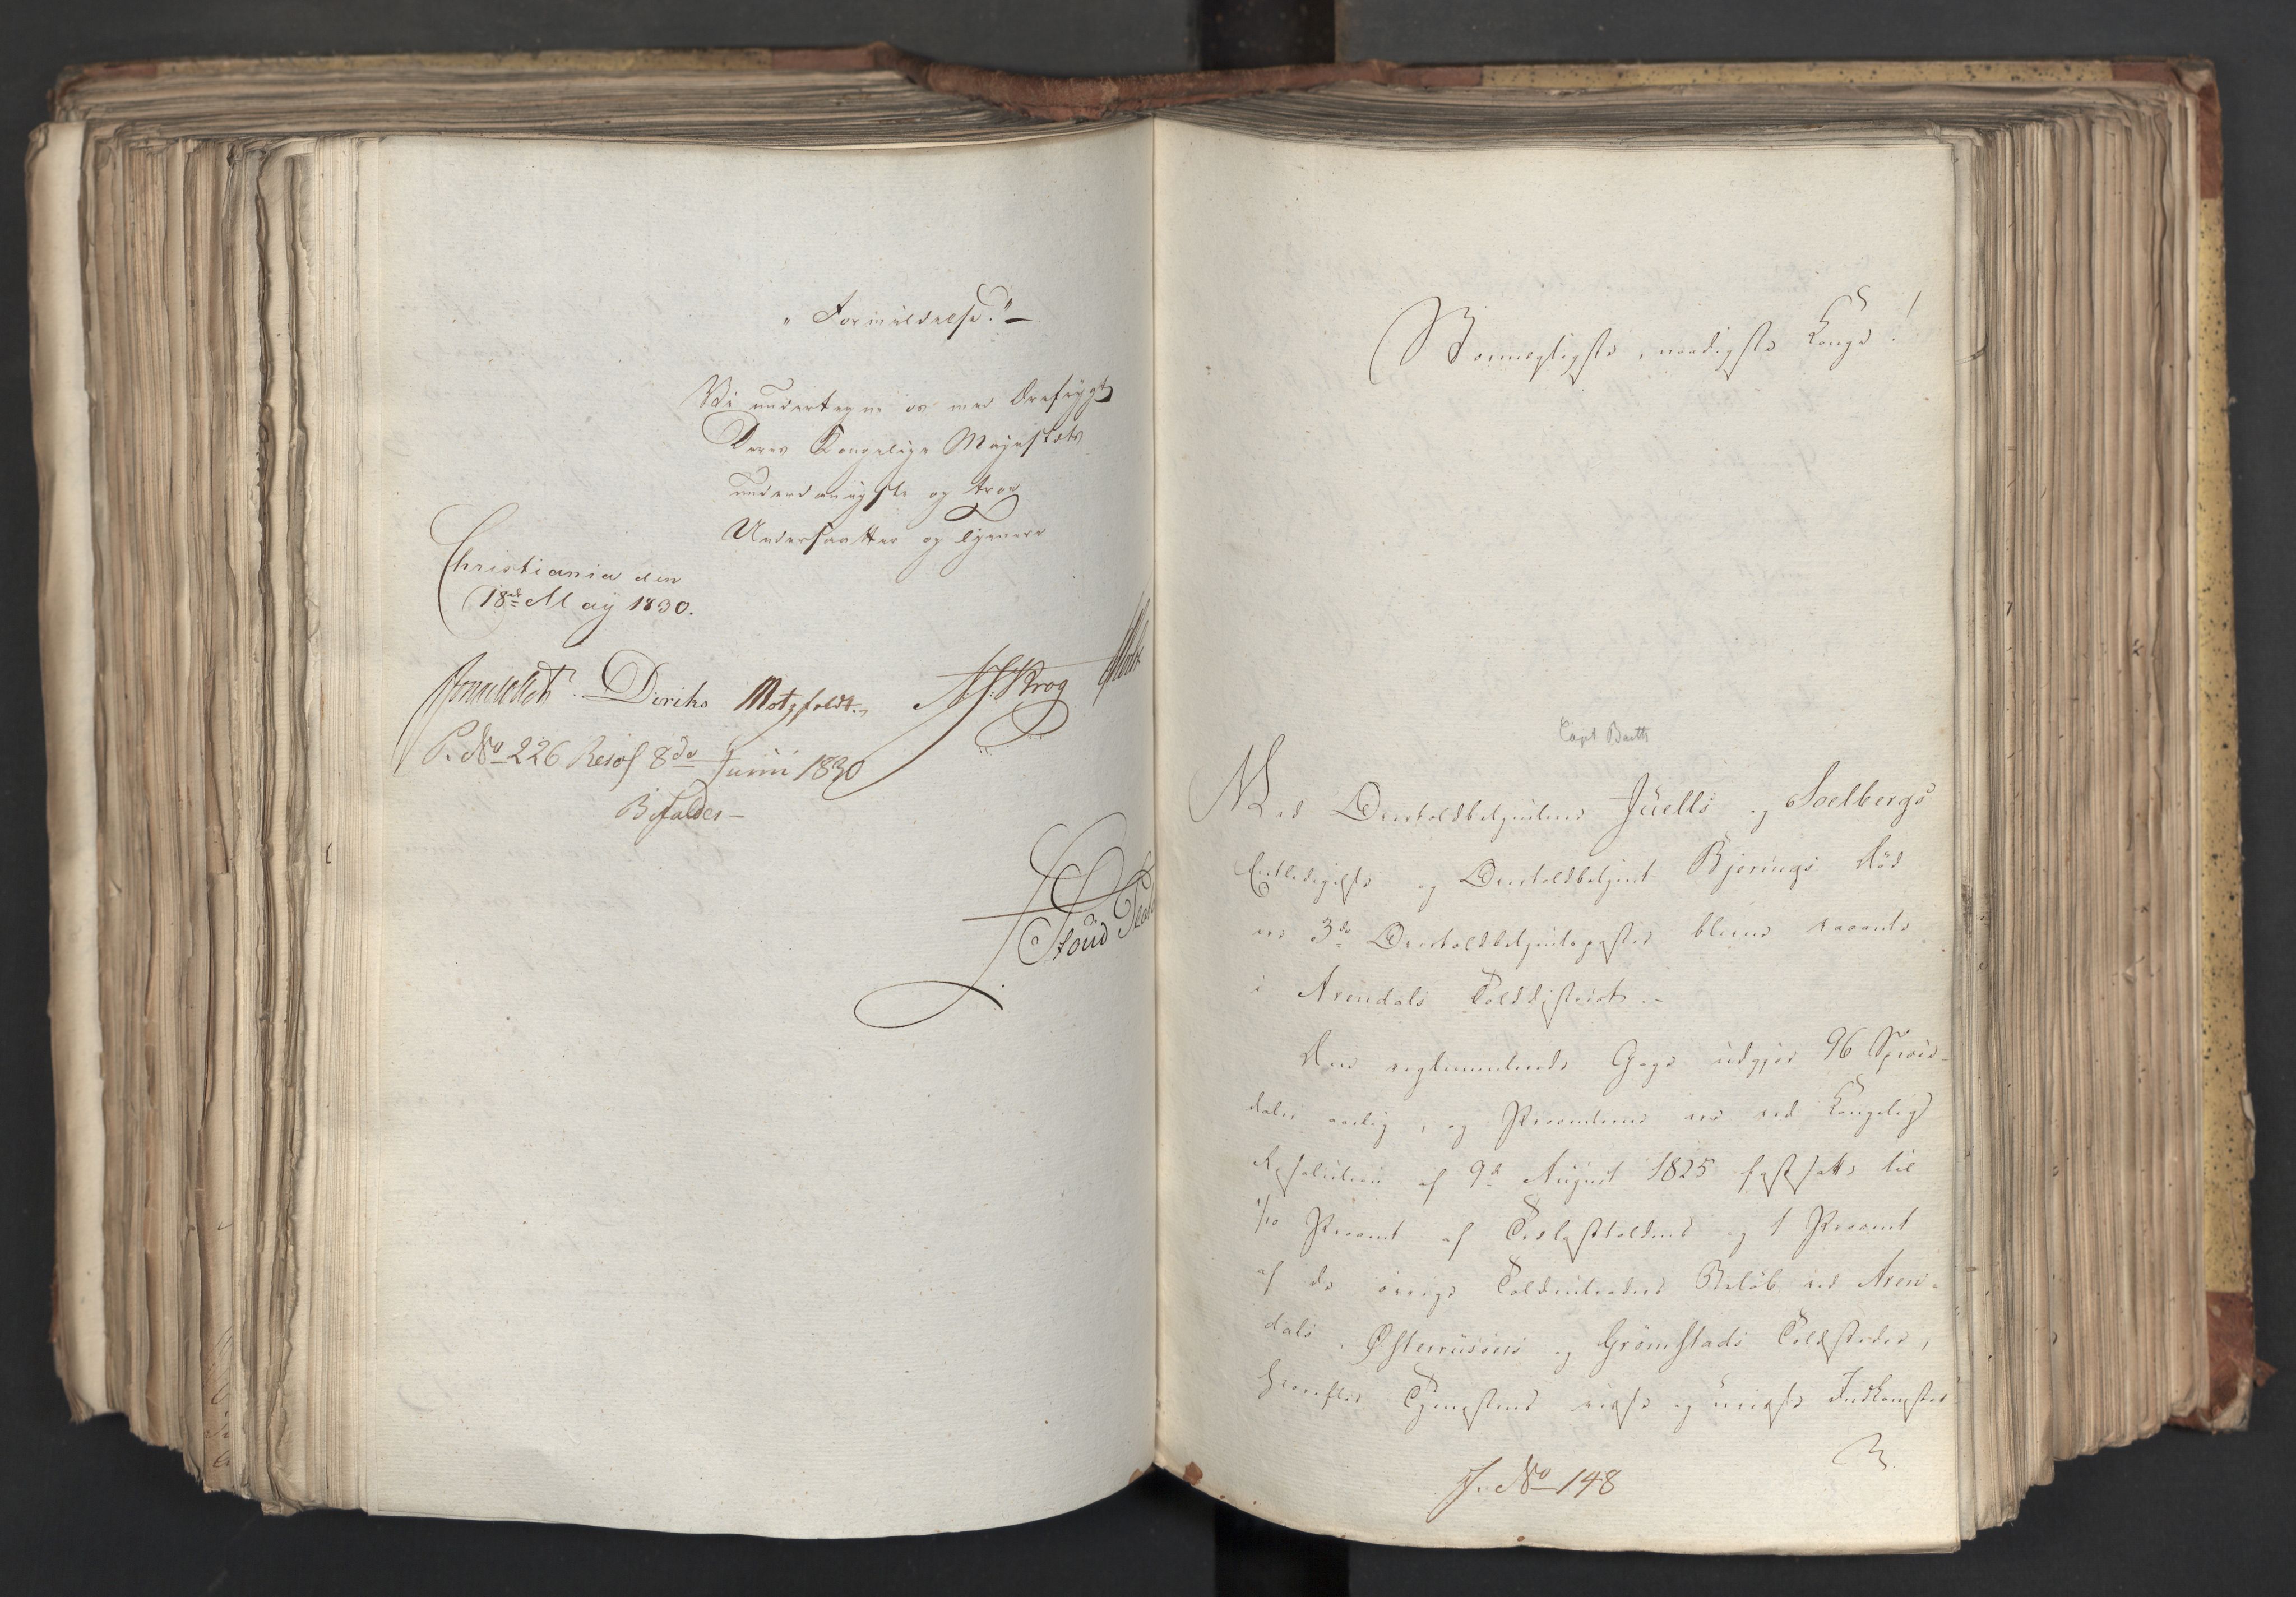 "Formildelse."—
Vi undertegne os med Ærefrygt
Deres Kongelige Majestæts
underdanigste og troe
Undersaatter og Tjenere
Christiania den
18de May 1830.
Diriks Motzfeldt. Krog Holst
P. No 226 Resol 8de Junii 1830
Bifaldes—
Stormægtigste, naadigste Konge!
Capt Barth
Ved Overtoldbetjentene Juells og Soelbergs
Entledigelse og Overtoldbetjent Bjerings Død
ere 3de Overtoldbetjentposter blevne vacante
i Arendals Tolddistrict.—
Den reglementerede Gage udgjør 96 Species-
daler aarlig, og Procenterne ere ved Kongelig
Resolution af 9de August 1825 fastsatte til
1/10 Procent af Trælasttolden og 1 Procent
af de øvrige Toldintraders Beløb ved Aren-
dals, Østerriisøers og Grømstads Toldsteder,
hvorefter Tjenestens visse og uvisse Indkomster
J. No 148